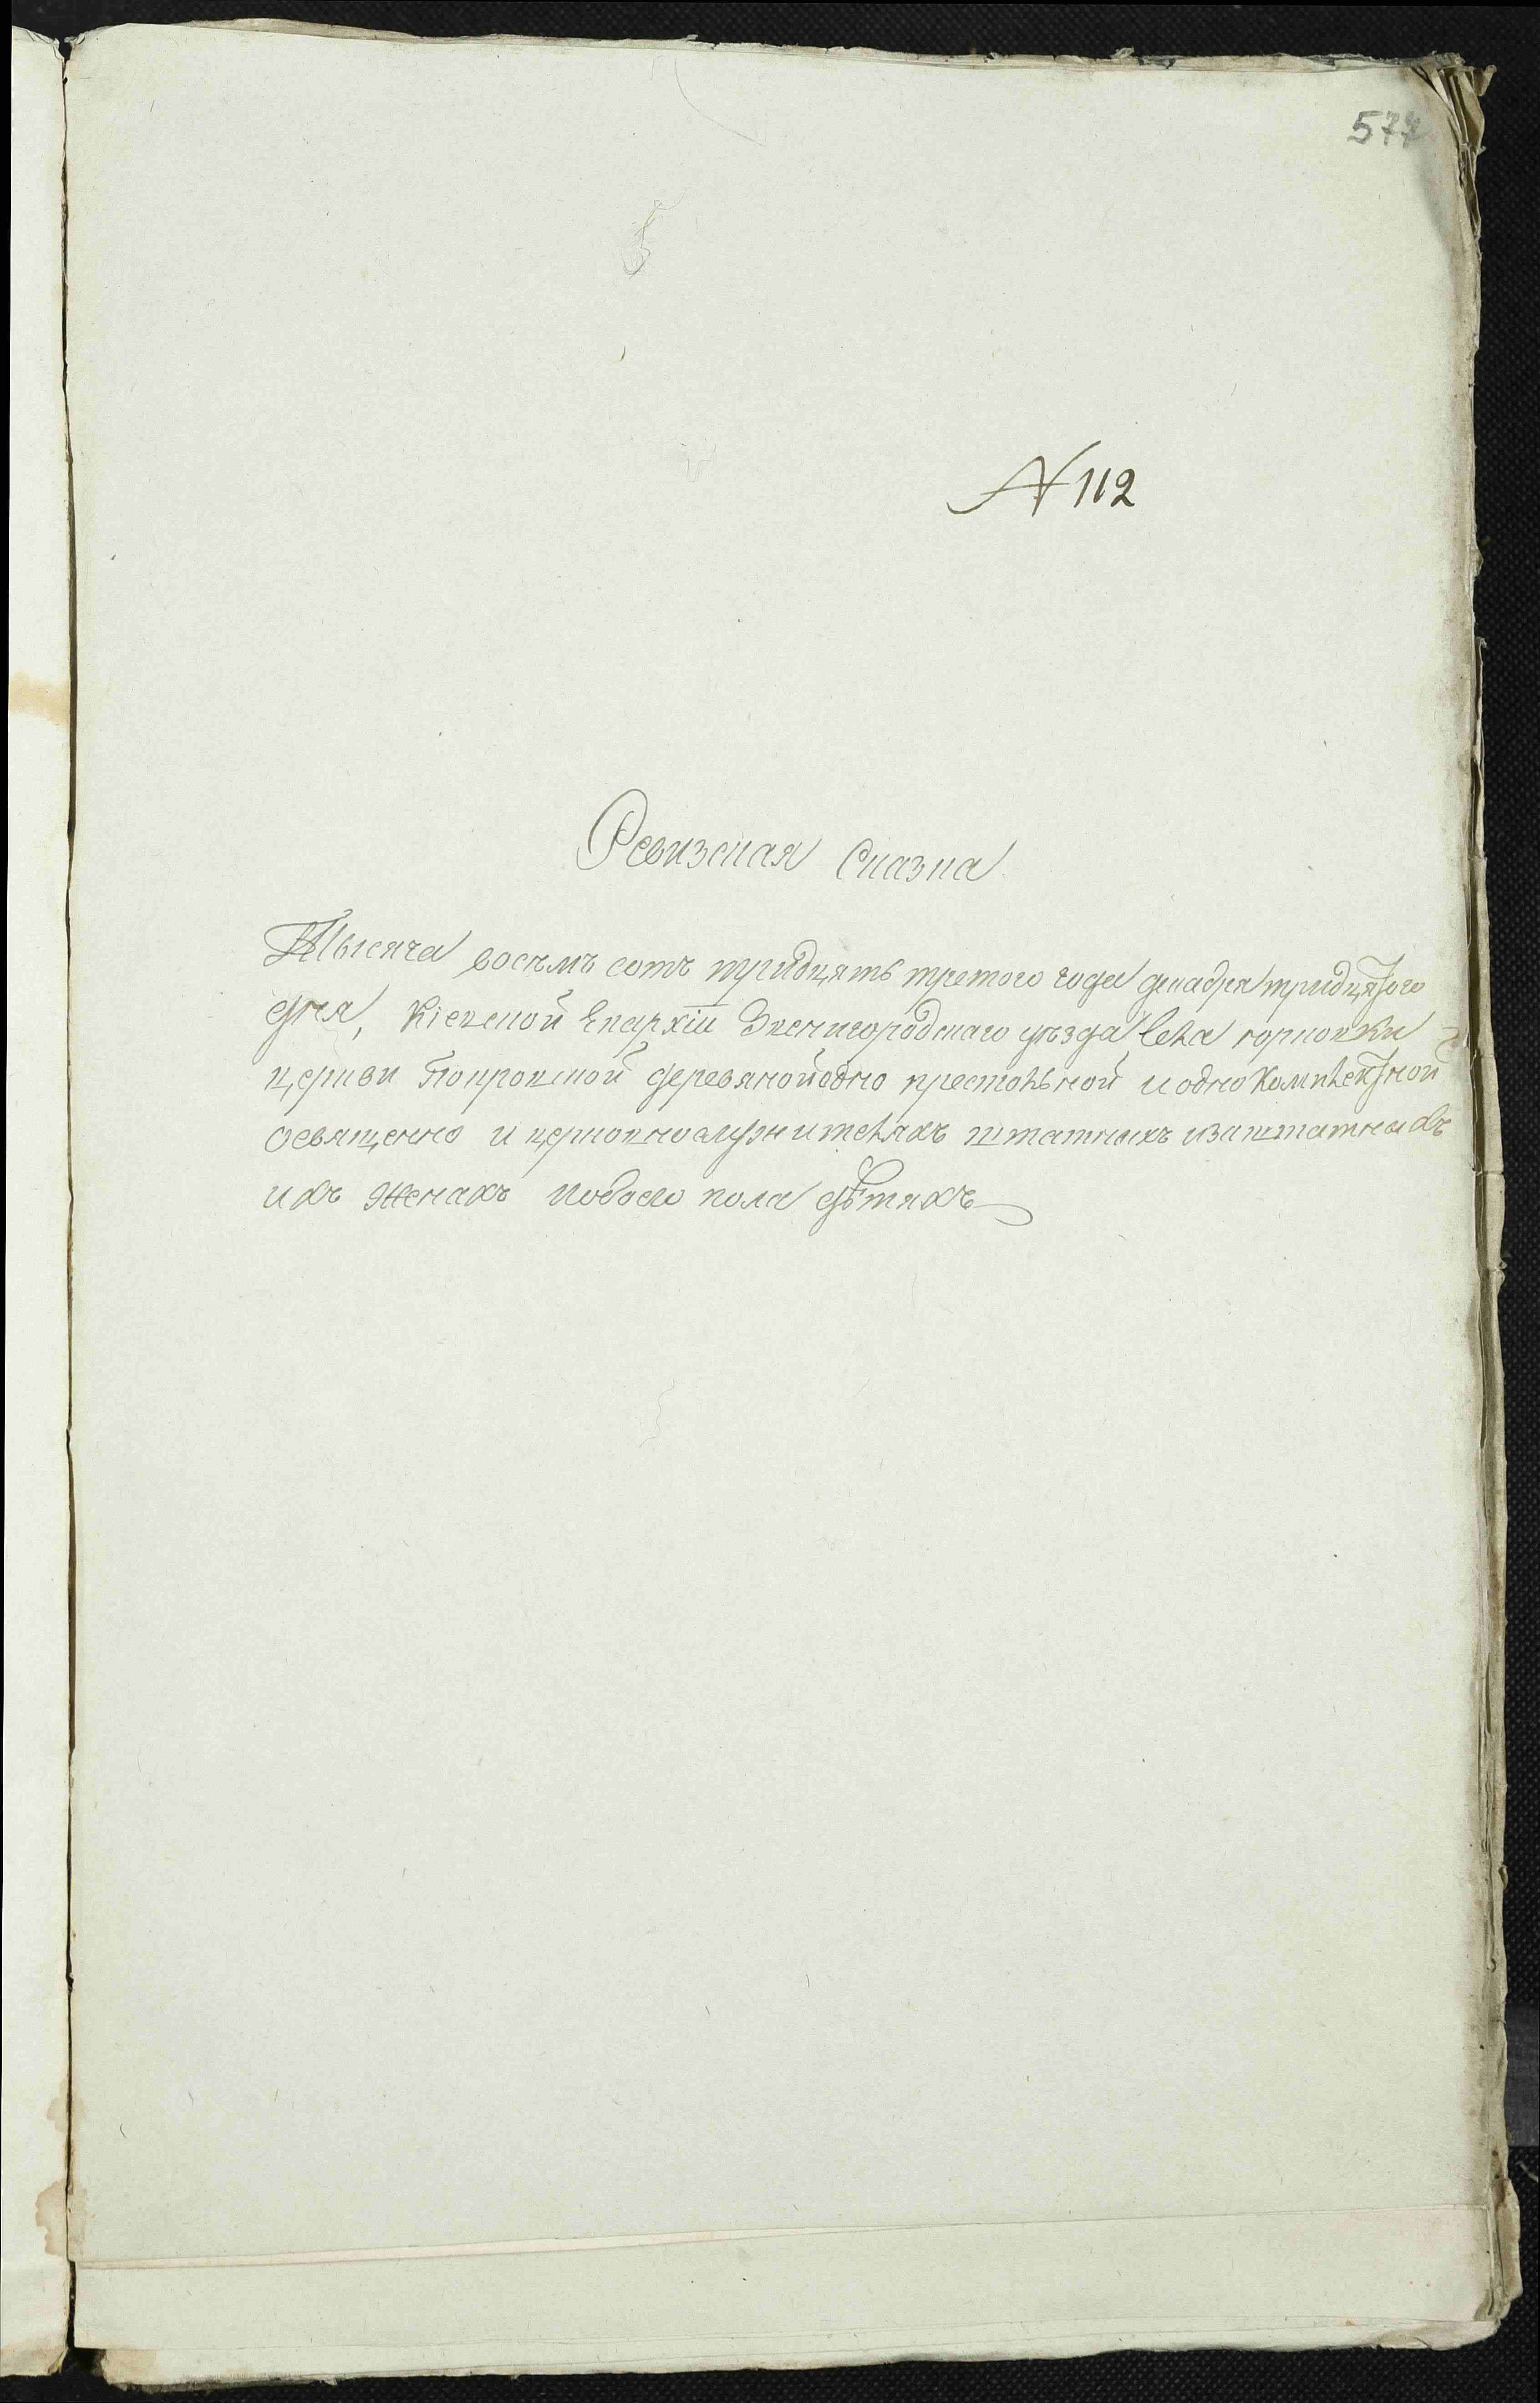 577
N 112
Ревизская Сказка
Тысяча восемъ сотъ тридцять третого года декабря тридцятого
дня, Кіевской Епархіи Звенигородскаго уѣзда села
церкви Покровской деревяной одно престольной и одно комплектной
освященно и церковнослужителяхъ штатныхъ изаштатныхъ
ихъ женахъ иобоего пола дѣтяхъ